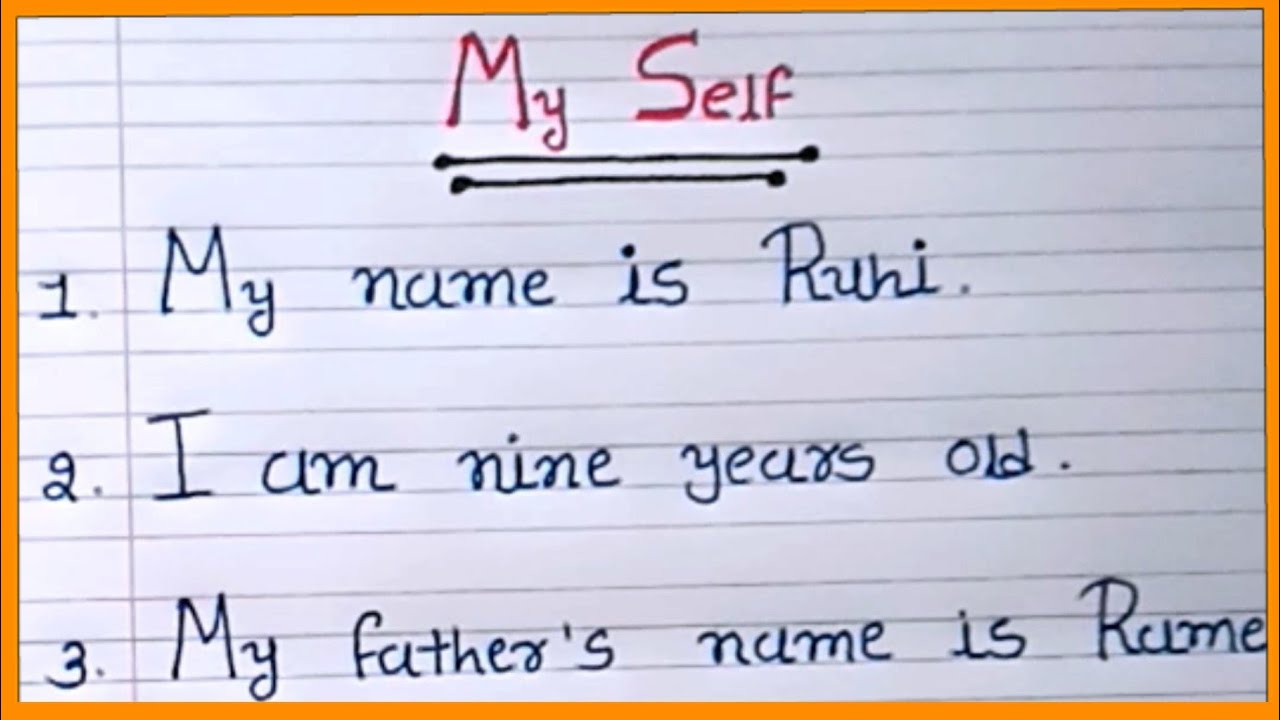 My Self
1. My name is Ruhi.
2. I am nine years old.
3. My father's name is Rame